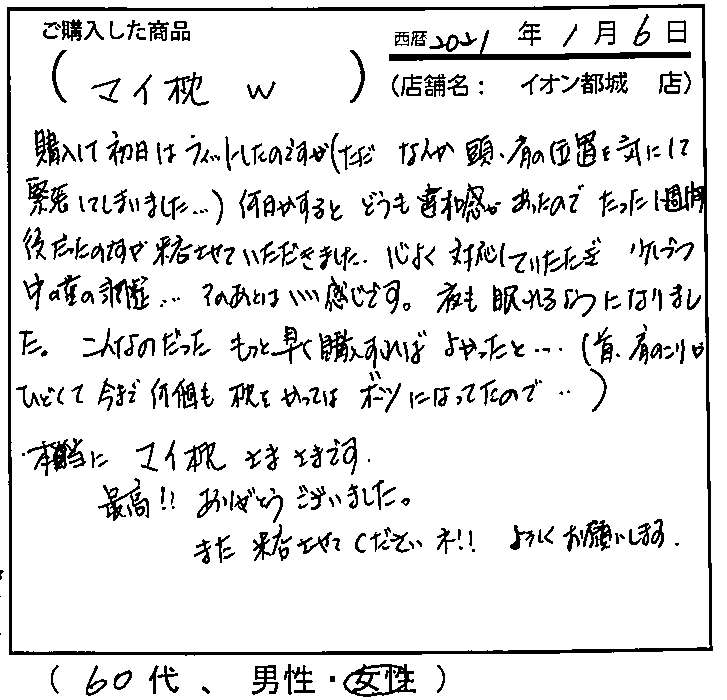 ご購入した商品
西暦2021年1月6日
(マイ枕 w)
(店舗名: イオン都城 店)
購入して初日はフィットしたのですが(ただ なんか 頭、肩の位置を気にして
緊張してしまいました…) 何日かすると どうも違和感があったので たった1週間
後だったのですが来店させていただきました. 心よく対応していただき 少しづつ
中の直の調整… そのあとはいい感じです。夜も眠れるようになりまし
た。こんなのだった もっと早く購入すれば よかったと… (首、肩のこりが
ひどくて今まで何個も枕をかっては ボツになってたので‥)
本当に マイ枕 さまさまです.
最高!! ありがとうございました。
また 来店させてくださいネ!! よろしくお願いします.
(60代、男性・女性)